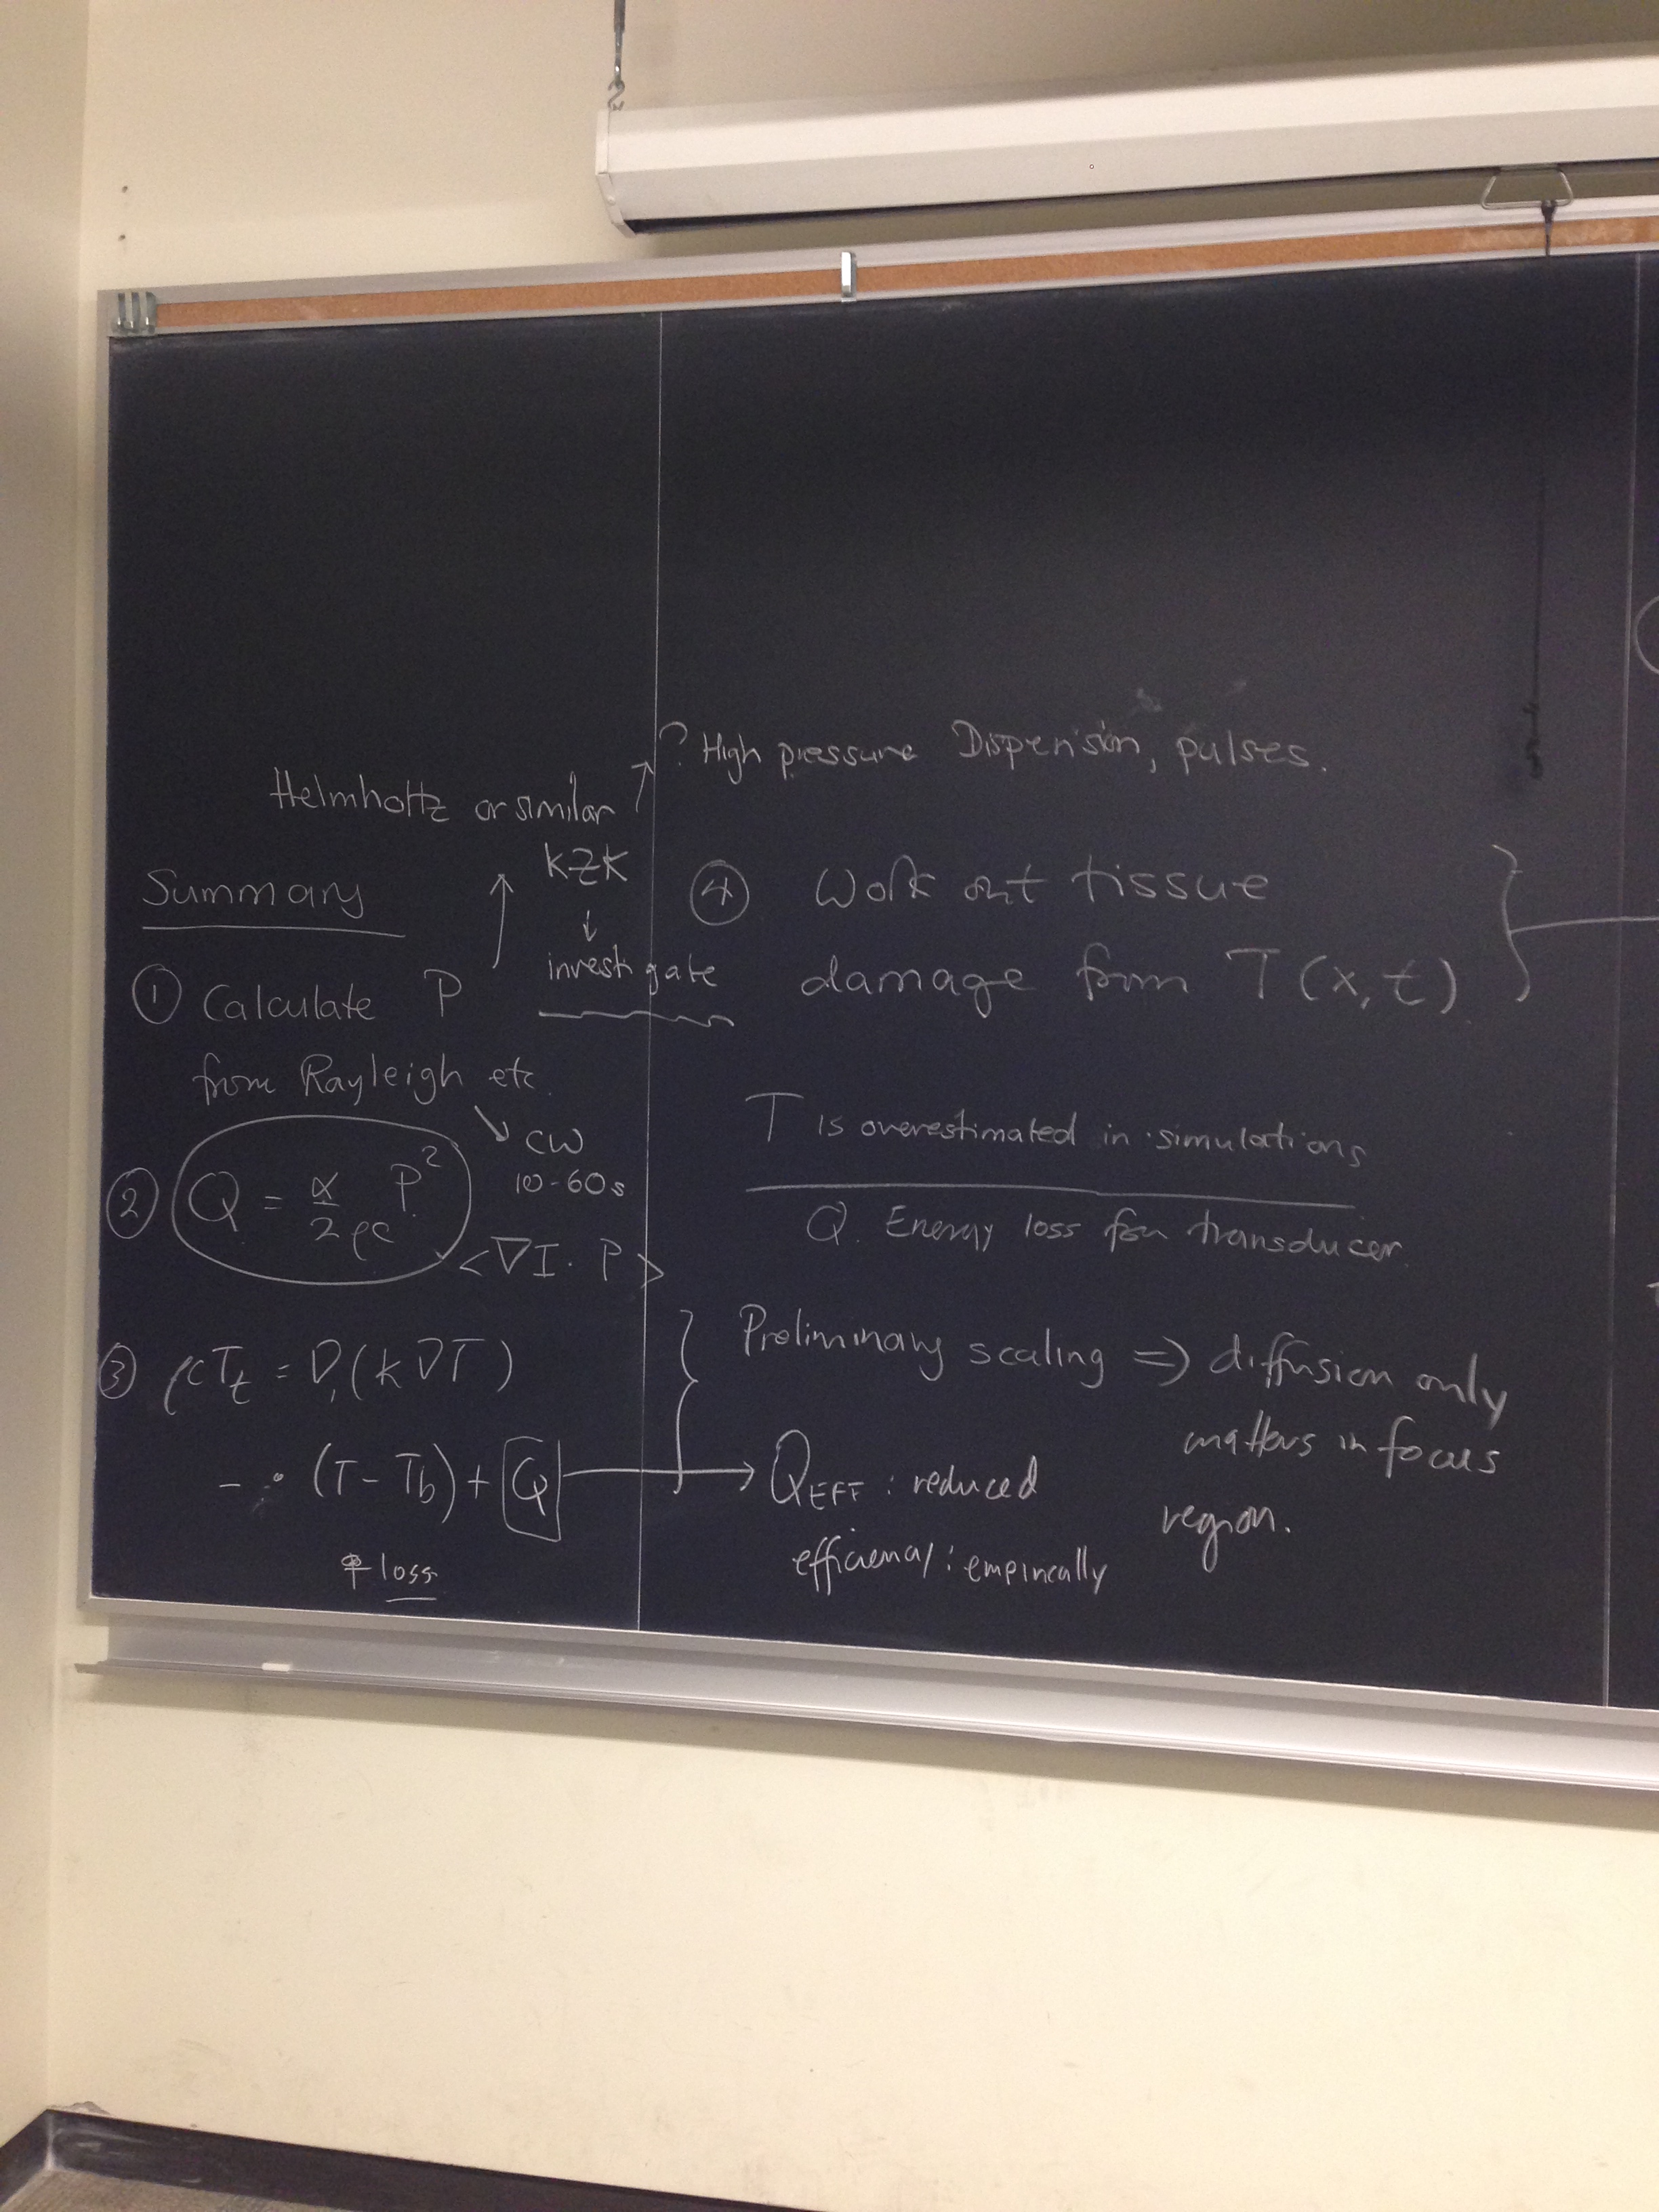 ? High pressure Dispersion, pulses.
Helmholtz or similar
KZK
↓
investigate
Summary
① Calculate P
from Rayleigh etc.
CW
10-60s
② Q = α/2ρc P²
<∇I · P>
③ ρcT_t = ∇·(k∇T)
- · (T - T_b) + Q
loss
④ Work out tissue
damage from T(x,t)
T is overestimated in simulations
Q. Energy loss from transducer
Preliminary scaling => diffusion only
matters in focus
region.
Q_EFF : reduced
efficiency : empirically